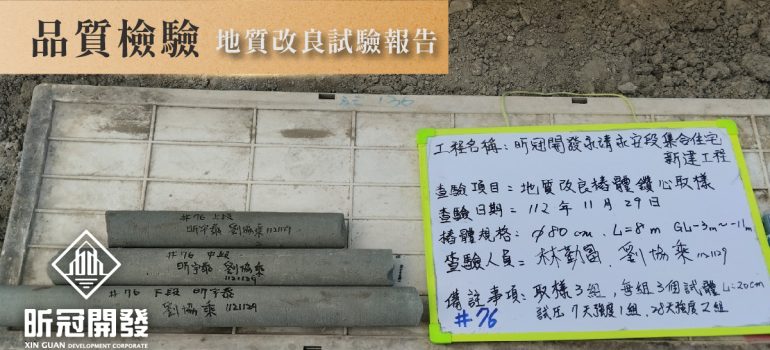 品質檢驗 地質改良試驗報告
工程名稱：昕冠開發永靖永安段集合住宅
新建工程
查驗項目＝地質改良樁體鑽心取樣
查驗日期＝112年11月29日
樁體規格：φ80cm、L=8m GL-3m~-11m
查驗人員＝林勤圖、劉協乘 1121129
備註事項：取樣3組，每組3個試體 L=20cm
試压7天強度1組、28天強度2組
#76
#76 上段
劉協乘 1121129
#76 中段
劉協乘
1121129
#76 下段
劉協乘 1121129
昕冠開發
XIN GUAN DEVELOPMENT CORPORATE